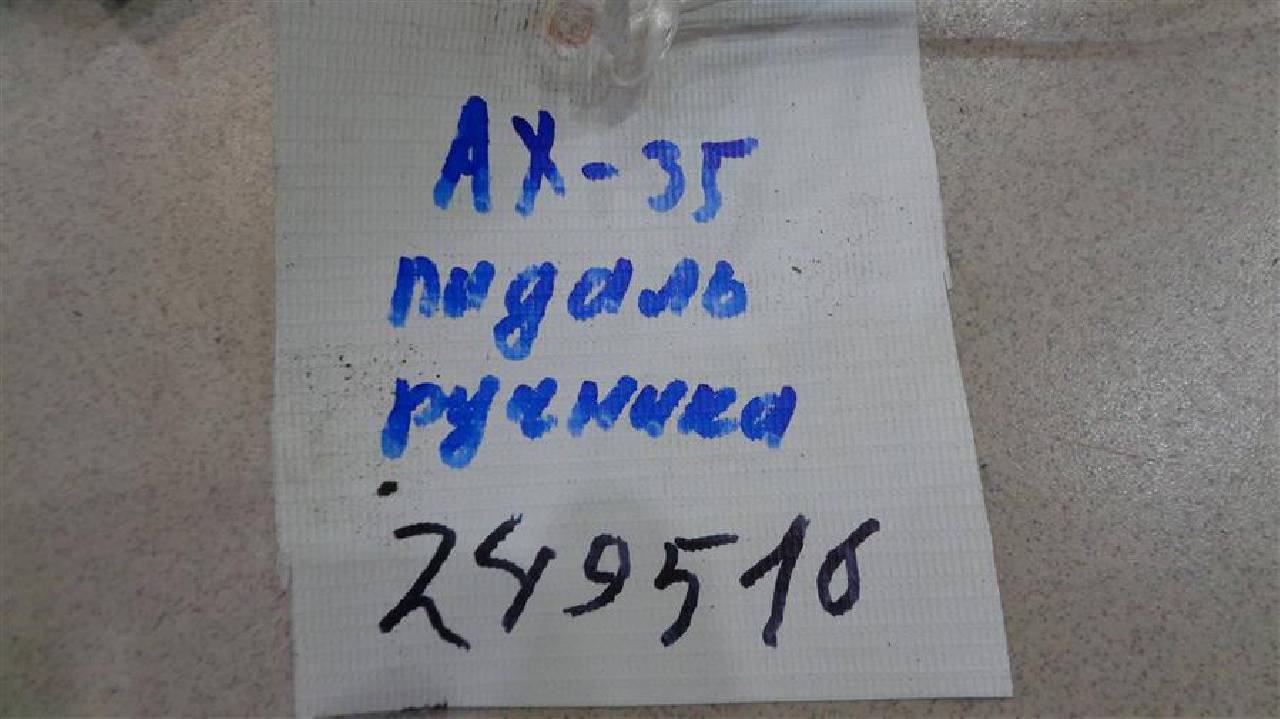 АХ-35
пидаль
ручника
249516